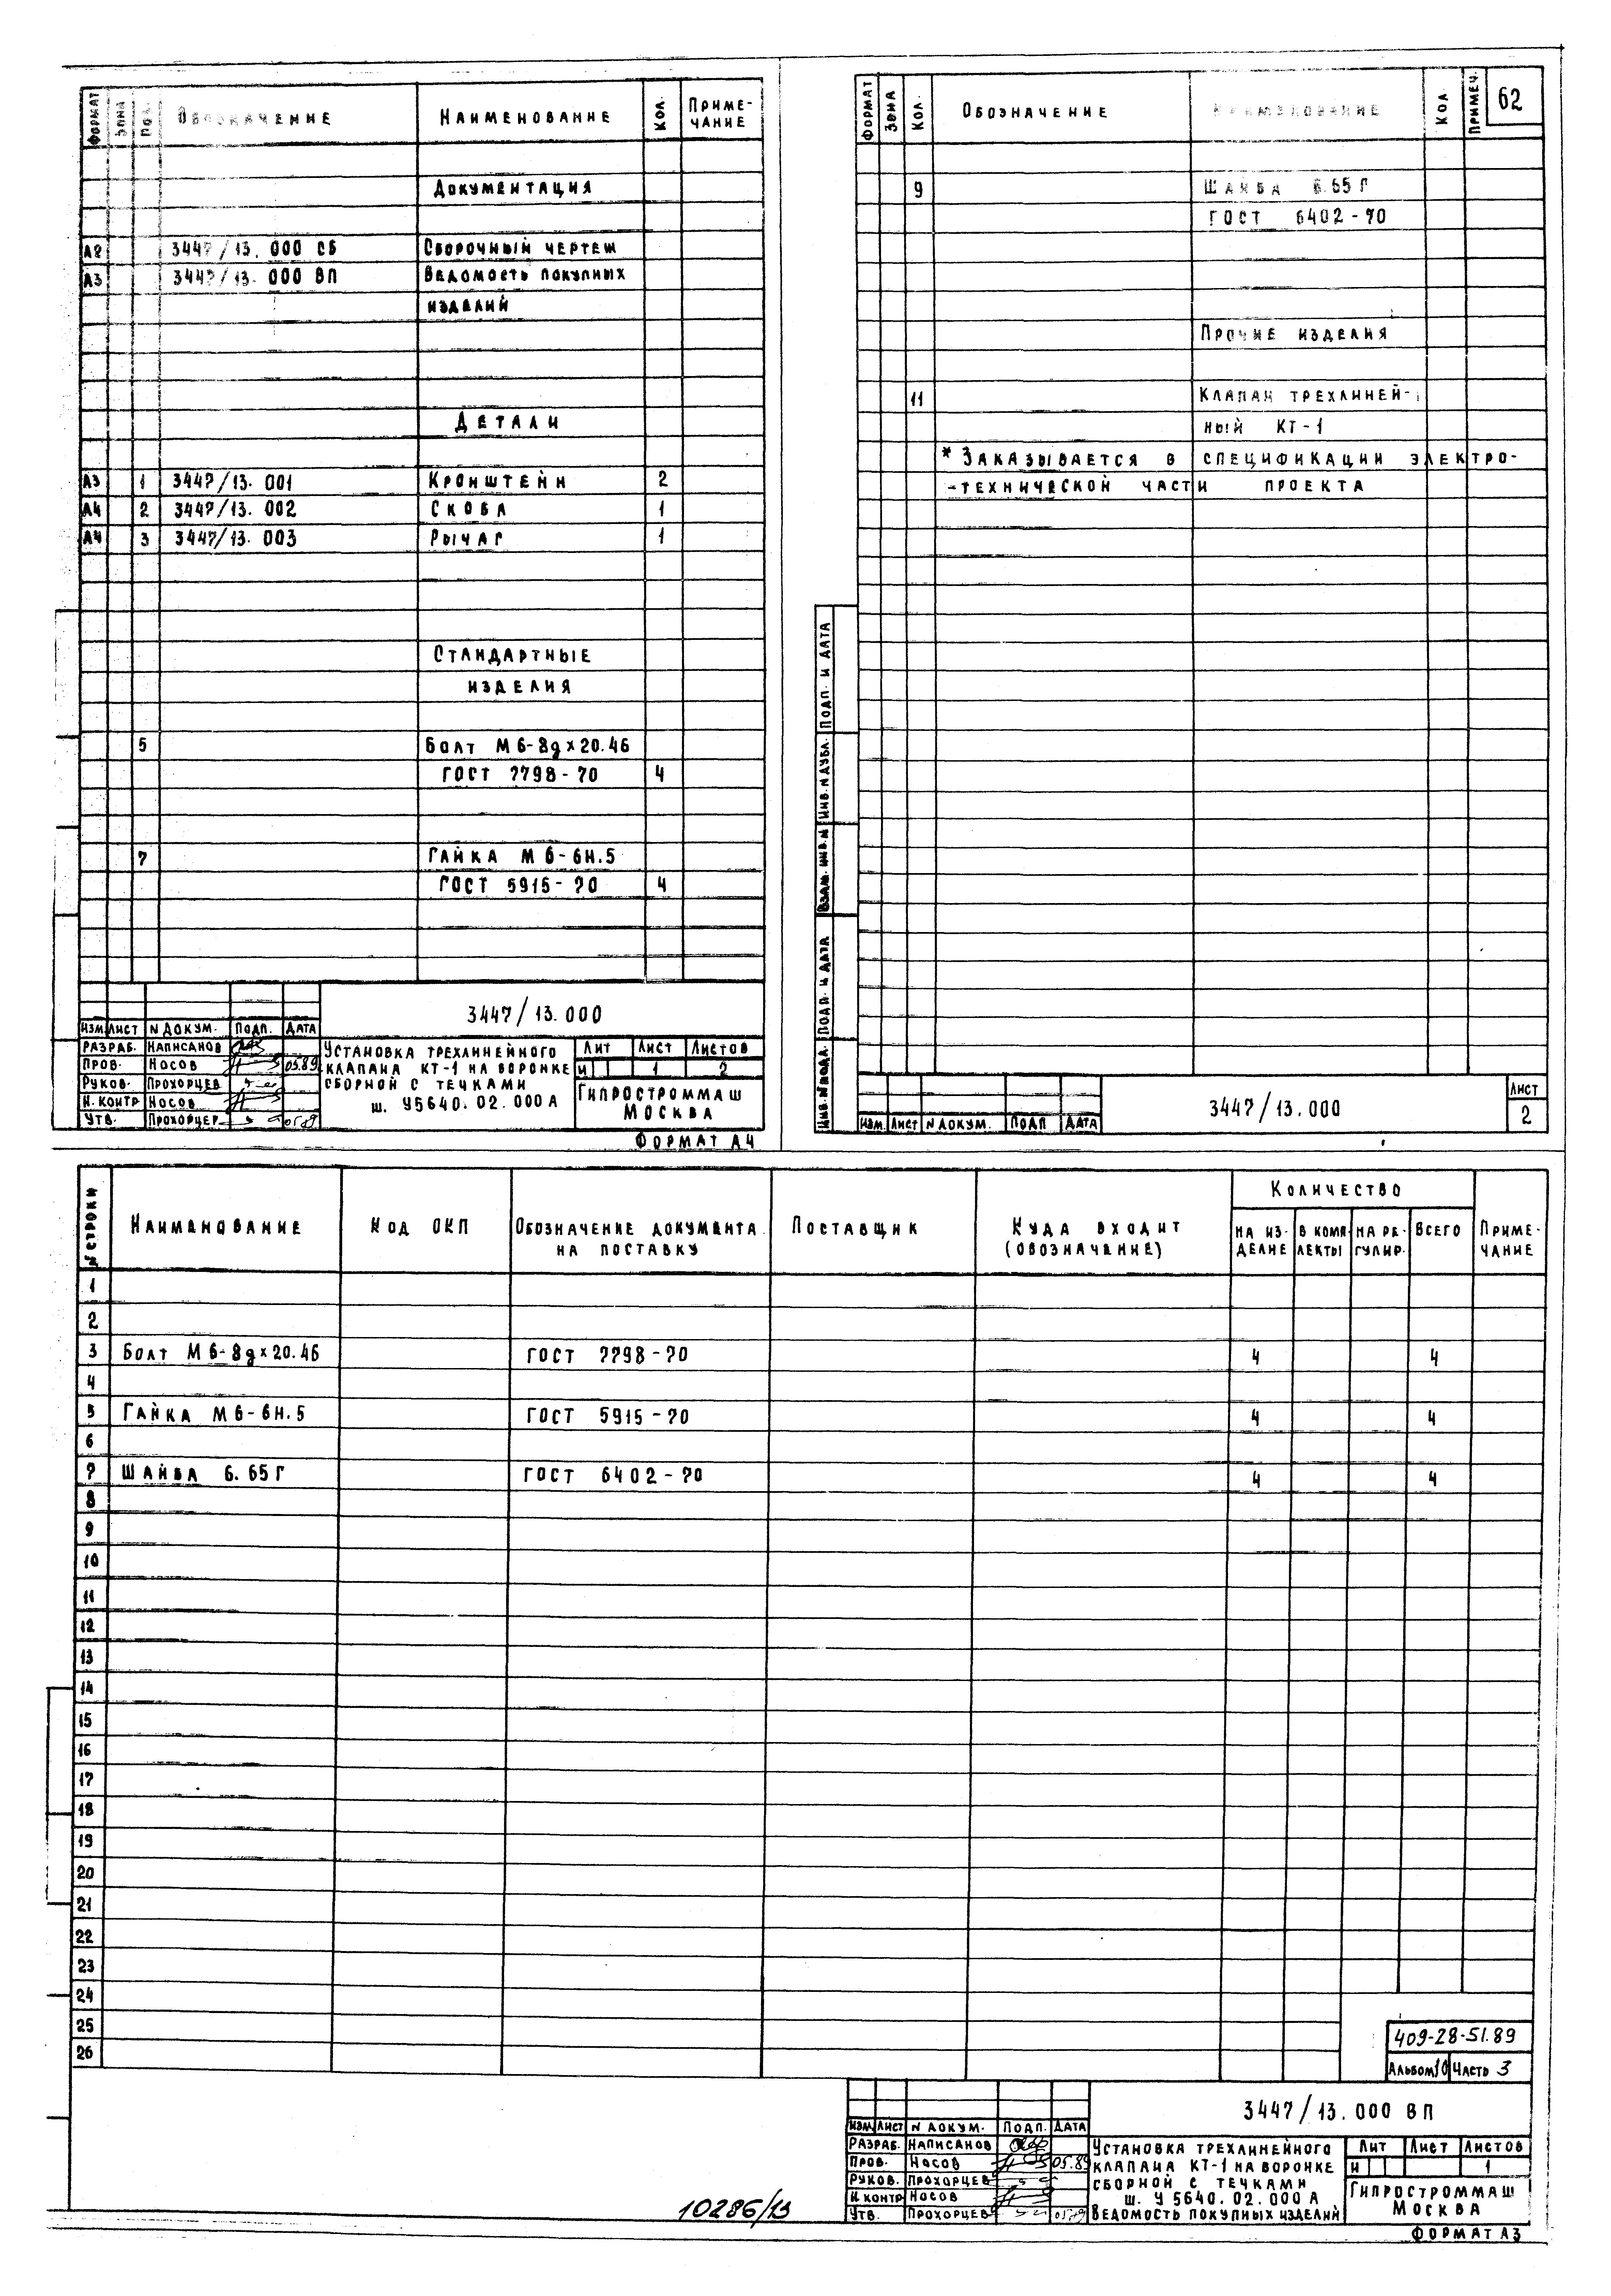 Формат Зона Поз. Обозначение Наименование Кол. Приме-
чание
Документация
А2 3447/13. 000 СБ Сборочный чертеж
А3 3447/13. 000 ВП Ведомость покупных
изделий
Детали
А3 1 3447/13. 001 Кронштейн 2
А4 2 3447/13. 002 Скоба 1
А4 3 3447/13. 003 Рычаг 1
Стандартные
изделия
5 Болт М6-8gх20.46
ГОСТ 7798-70 4
7 Гайка М6-6Н.5
ГОСТ 5915-70 4
3447/13.000
Изм. Лист N докум. Подп. Дата
Разраб. Написанов
Пров. Носов 05.89
Руков. Прохорцев
Н. контр Носов
Утв. Прохорцев 05.89
Установка трехлинейного
клапана КТ-1 на воронке
сборной с течками
ш. У5640.02.000А
Лит Лист Листов
И 1 2
Гипростроммаш
Москва
Формат А4
62
Формат Зона Кол. Обозначение Наименование Кол Примеч.
9 Шайба 6.65Г
ГОСТ 6402-70
Прочие изделия
11 Клапан трехлиней-
ный КТ-1
* Заказывается в спецификации электро-
-технической части проекта
Подп. и дата
Инв. N дубл.
Взам. инв. N
Подп. и дата
Инв. N подл.
Изм. Лист N докум. Подп Дата
3447/13.000
Лист
2
N строки Наименование Код ОКП Обозначение документа
на поставку Поставщик Куда входит
(обозначение) Количество Приме-
чание
На из-
делие В комп-
лекты На ре-
гулир. Всего
1
2
3 Болт М6-8gх20.46 ГОСТ 7798-70 4 4
4
5 Гайка М6-6Н.5 ГОСТ 5915-70 4 4
6
7 Шайба 6.65Г ГОСТ 6402-70 4 4
8
9
10
11
12
13
14
15
16
17
18
19
20
21
22
23
24
25
26
409-28-51.89
Альбом 10 Часть 3
3447/13.000 ВП
Изм. Лист N докум. Подп. Дата
Разраб. Написанов
Пров. Носов 05.89
Руков. Прохорцев
Н контр Носов
Утв. Прохорцев 05.89
Установка трехлинейного
клапана КТ-1 на воронке
сборной с течками
ш. У 5640.02.000 А
Ведомость покупных изделий
Лит Лист Листов
И 1
Гипростроммаш
Москва
Формат А3
10286/13